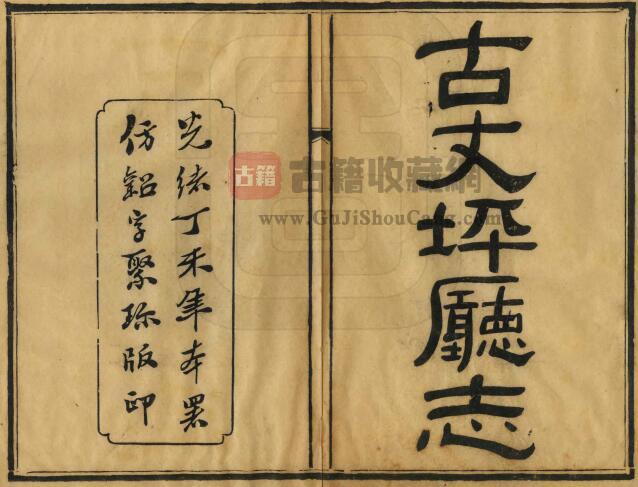 古丈坪廳志
光緒丁未年本署
仿鉛字聚珍版印
古籍
古籍收藏網
www.GuJiShouCang.com